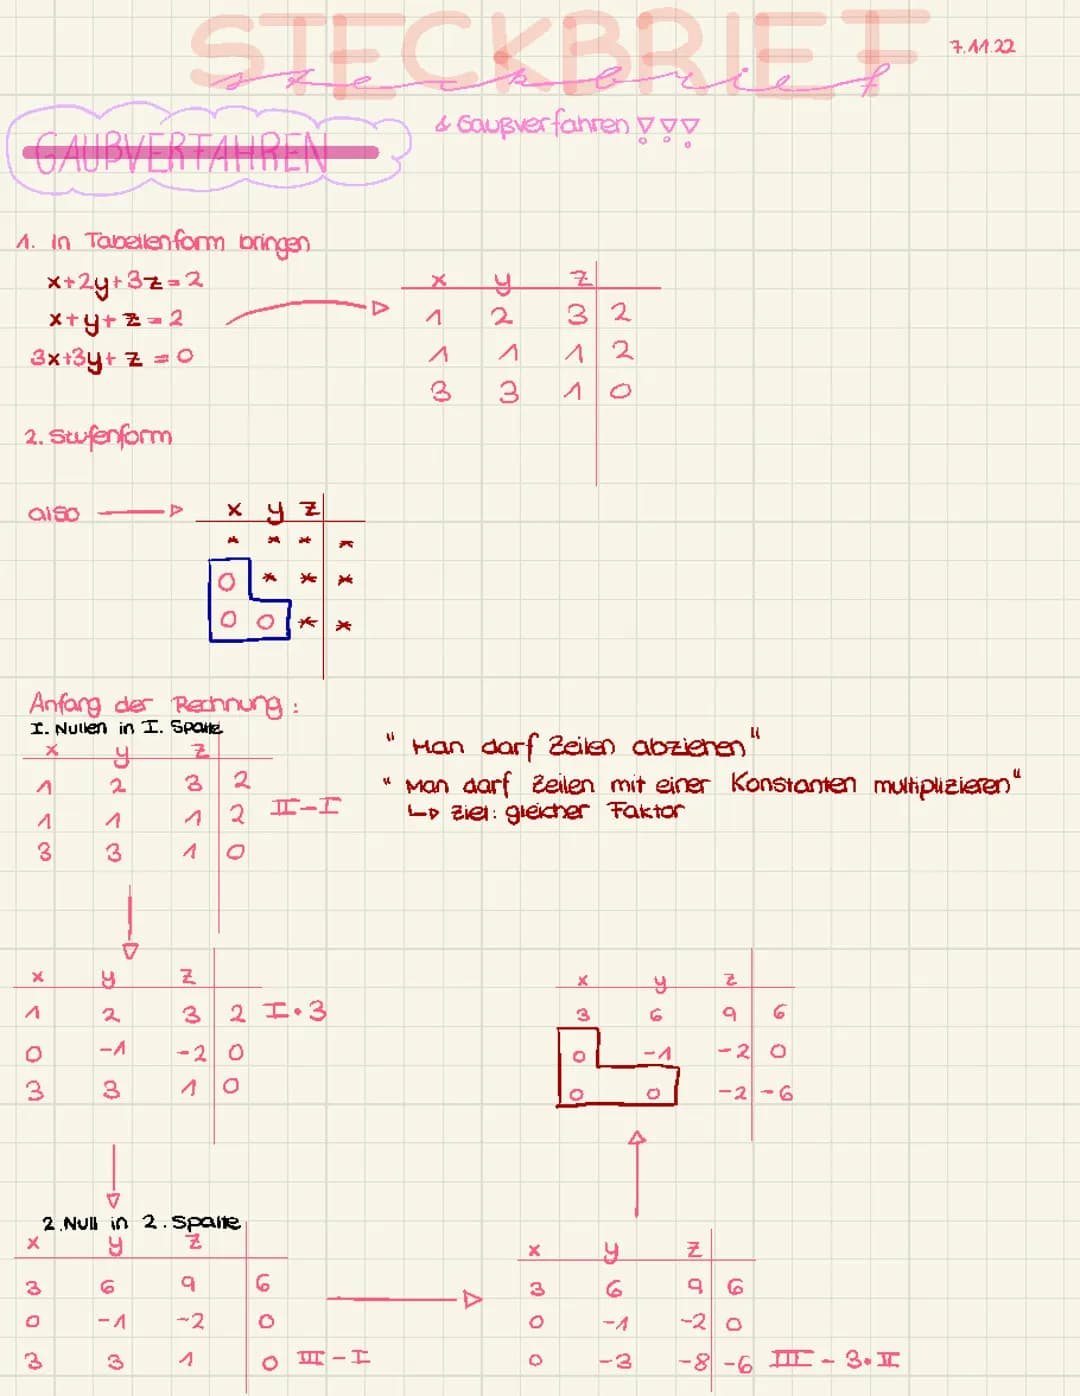 STECKBRIEF
steckbrief
7.11.22
GAUßVERFAHREN
↳ Gaußverfahren ▽▽▽
1. in Tabellenform bringen
x+2y+3z=2
x+y+z=2
3x+3y+z=0
x y z
1 2 3 2
1 1 1 2
3 3 1 0
2. Stufenform
also
x y z
* * * *
0 * * *
0 0 * *
Anfang der Rechnung:
I. Nullen in I. Spalte
x y z
1 2 3 2
1 1 1 2 II-I
3 3 1 0
"Man darf Zeilen abziehen"
"Man darf Zeilen mit einer Konstanten multiplizieren"
↳ Ziel: gleicher Faktor
x y z
1 2 3 2 I·3
0 -1 -2 0
3 3 1 0
2. Null in 2. Spalte
x y z
3 6 9 6
0 -1 -2 0
3 3 1 0 III-I
x y z
3 6 9 6
0 -1 -2 0
0 -3 -8 -6 III-3·II
x y z
3 6 9 6
0 -1 -2 0
0 0 -2 -6